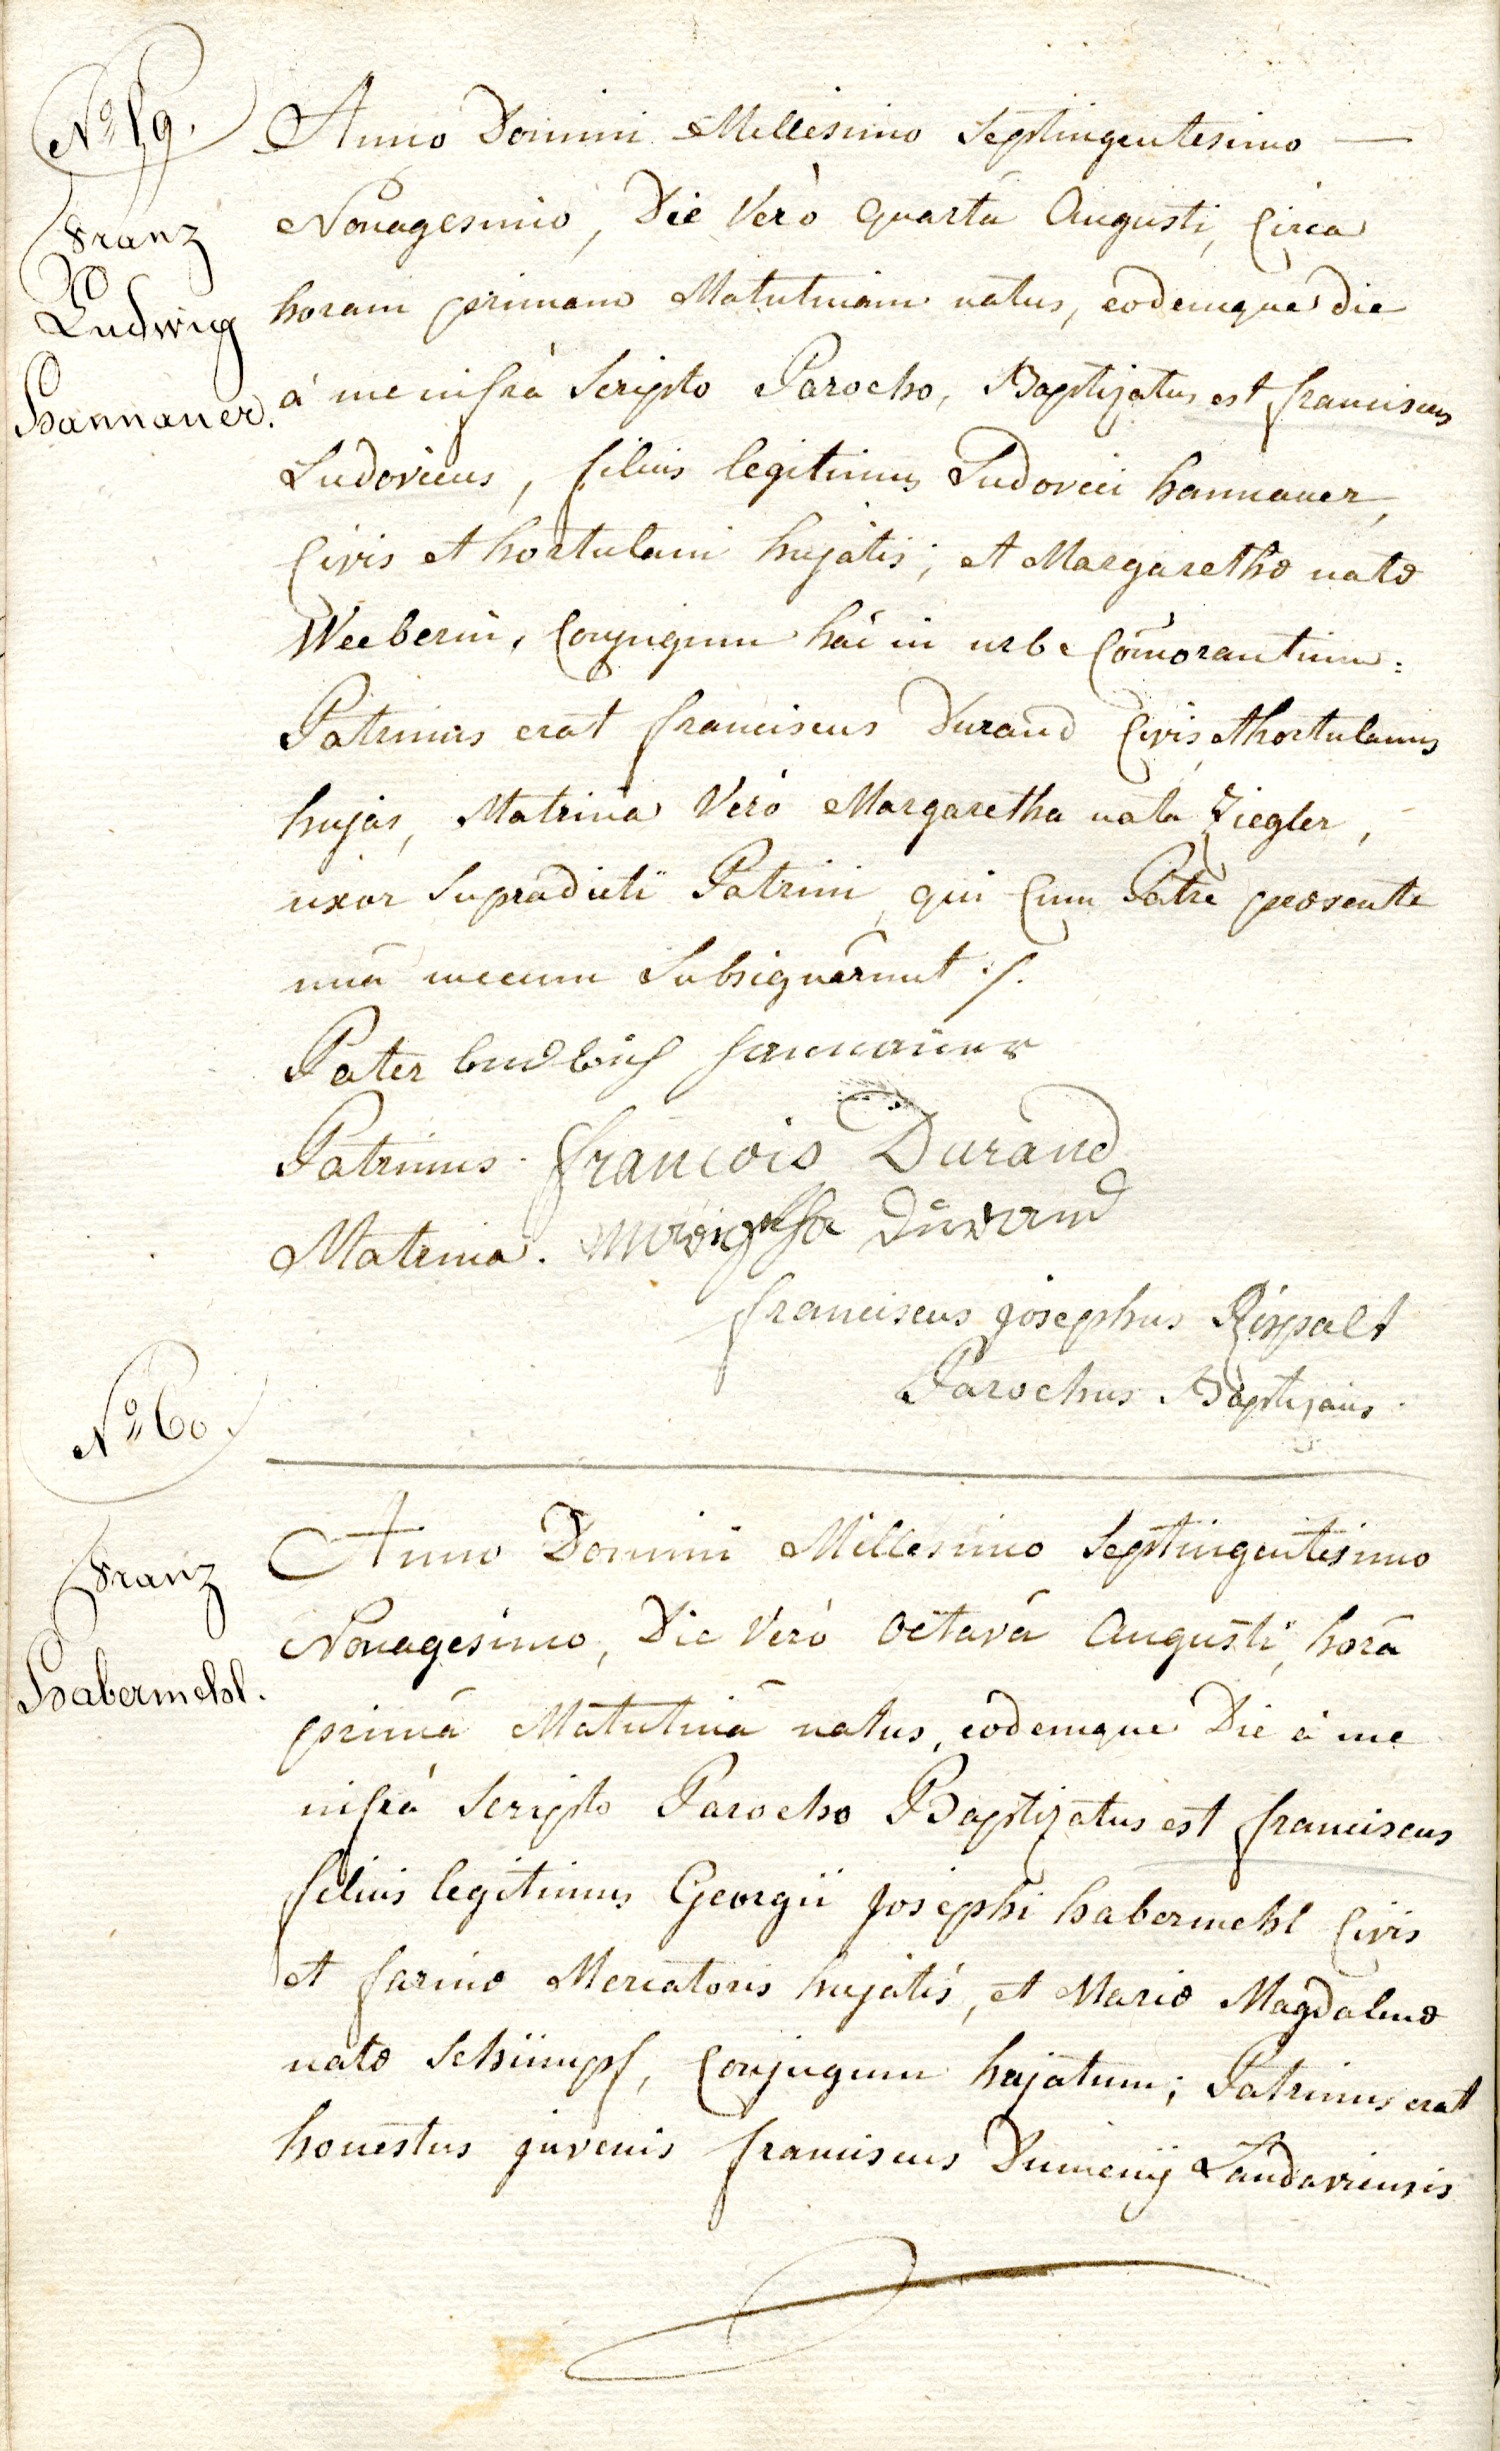 No 59.
Franz
Ludwig
Hannauer.
Anno Domini Millesimo Septingentesimo —
Nonagesimo, Die Verò quartâ Augusti, Circa
horam primam Matutinam natus, eodemque die
à me infrà Scripto Parocho, Baptizatus est franciscus
Ludovicus, filius legitimus Ludovici hannauer,
Civis et hortulani hujatis; et Margarethæ natæ
Weeberin, Conjugum hâc in urbe Com̄orantium:
Patrinus erat franciscus Durand Civis et hortulanus
hujas, Matrina Verò Margaretha nata Ziegler,
uxor Supradicti Patrini, qui Cum Patre præsente
unà mecum Subsignârunt ./.
Pater ludwig hannauer
Patrinus. francois Durand
Matrina. Durand
franciscus josephus Rispalt
Parochus Baptizans.
No 60.
Franz
Habermehl.
Anno Domini Millesimo Septingentesimo
Nonagesimo, Die Verò octavâ Augusti, horâ
primâ Matutinâ natus, eodemque Die à me
infrà Scripto Parocho Baptizatus est franciscus
filius legitimus Georgii josephi habermehl Civis
et farinæ Mercatoris hujatis, et Mariæ Magdalenæ
natæ Schimpf, Conjugum hujatum; Patrinus erat
honestus juvenis franciscus Dumenij Landaviensis